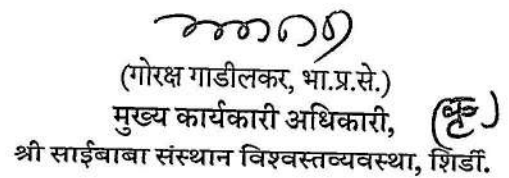 (गोरक्ष गाडीलकर, भा.प्र.से.)
मुख्य कार्यकारी अधिकारी,
श्री साईबाबा संस्थान विश्वस्तव्यवस्था, शिर्डी.